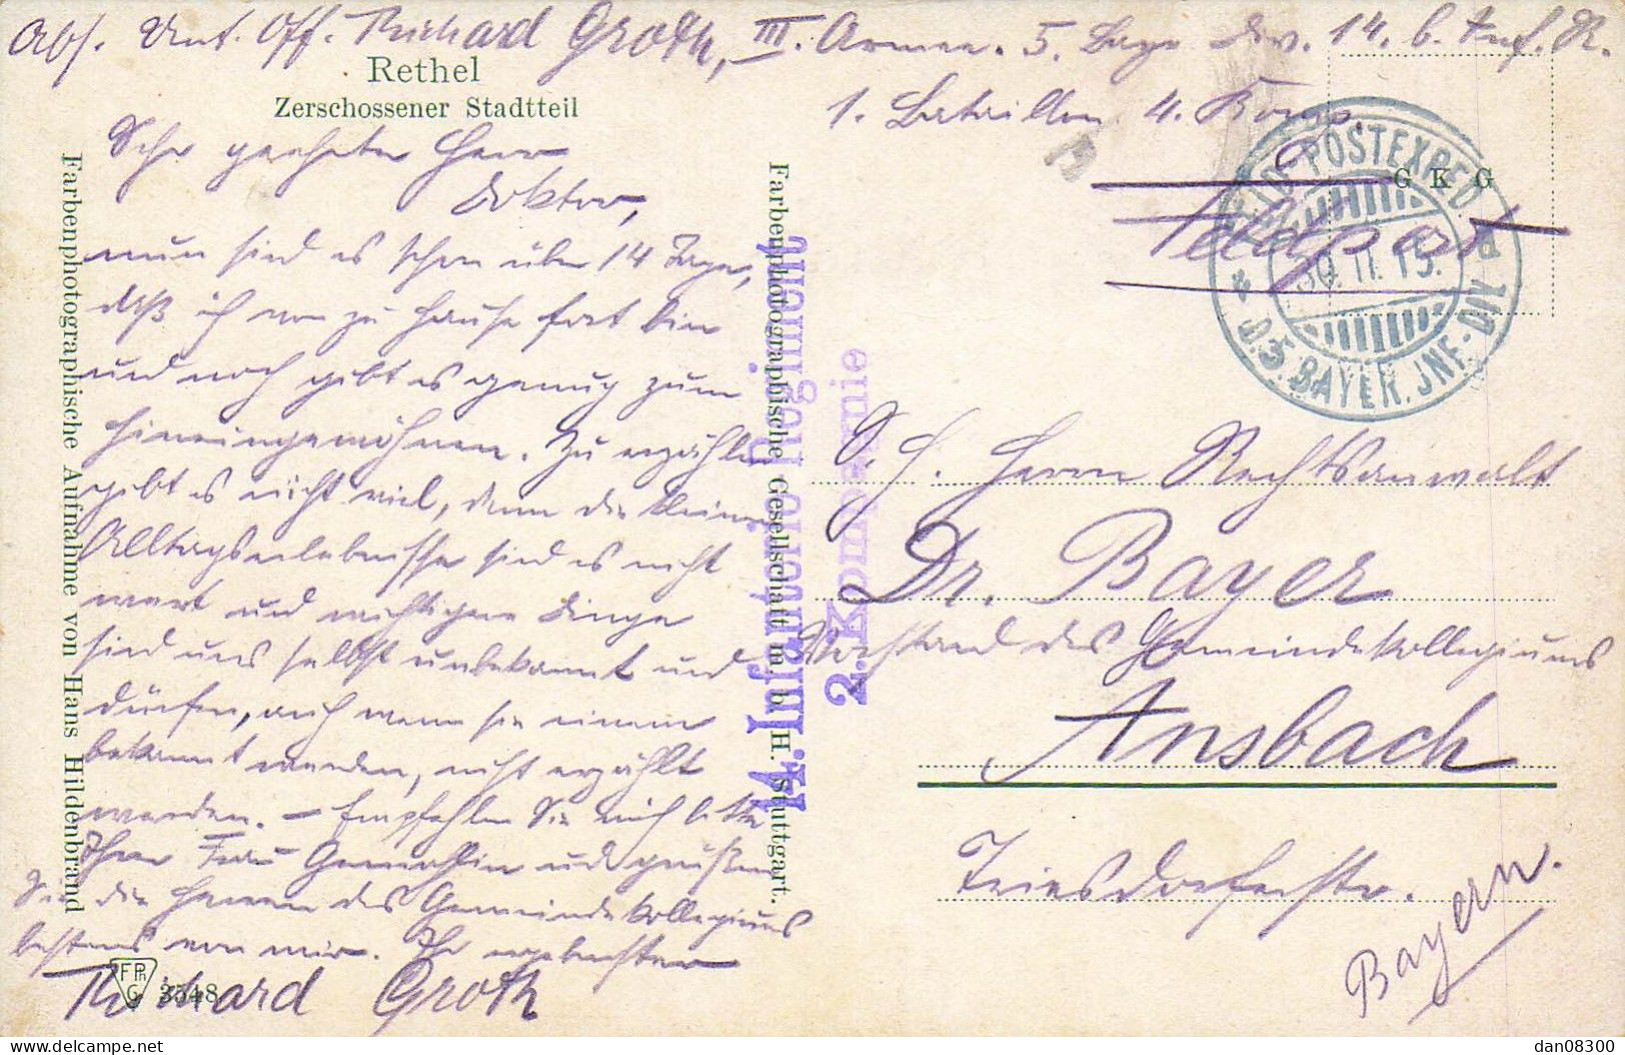 Abs. Unt. Off. Richard Groth, III. Armee. 5. bayr. Div. 14. b. Inf. R.
1. Bataillon 4. Komp.
Rethel
Zerschossener Stadtteil
Sehr geehrter Herr
Doktor,
nun sind es schon über 14 Tage,
daß ich von zu Hause fort bin
und noch gibt es genug zum
hineingewöhnen. Zu erzählen
gibt es nicht viel, denn die kleinen
Alltagserlebnisse sind es nicht
wert und wichtigere Dinge
sind uns selbst unbekannt und
dürfen, auch wenn sie einem
bekannt werden, nicht erzählt
werden. – Empfehlen Sie mich bitte
Ihrer Frau Gemahlin und grüßen
Sie die Herren des Gemeindekollegiums
bestens von mir. Ihr ergebenster
Richard Groth
Farbenphotographische Aufnahme von Hans Hildenbrand
FPhG 3548
Farbenphotographische Gesellschaft m. b. H. Stuttgart.
14. Infanterie Regiment
2. Kompagnie
G K G
Feldpost
FELDPOSTEXPED
D. 5. BAYER. JNF.-DIV.
30.11.15.
S. H. Herrn Rechtsanwalt
Dr. Bayer
Vorstand des Gemeindekollegiums
Ansbach
Triesdorferstr.
Bayern.
delcampe.net
dan08300